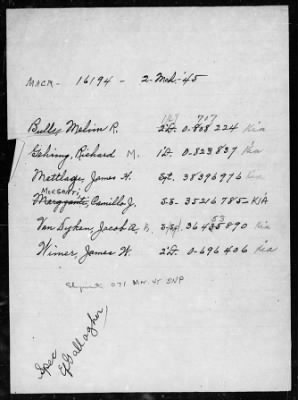 MACR - 16194 - 2-Mch-'45
1Lt 707
Butler, Melvin R. 2'Lt. 0-808 224 Kia
Gehring, Richard M. 1'Lt. 0-823837 Kia
Mattlage, James H. Sgt. 38396976 Kia
Camillo J. S.S. 35216785 KIA
53
Van Dyken, Jacob A. S/Sgt 36455890 Kia
Wimer, James W. 2'Lt. 0-696406 Kia
071 SNP
Spec
E Gallagher